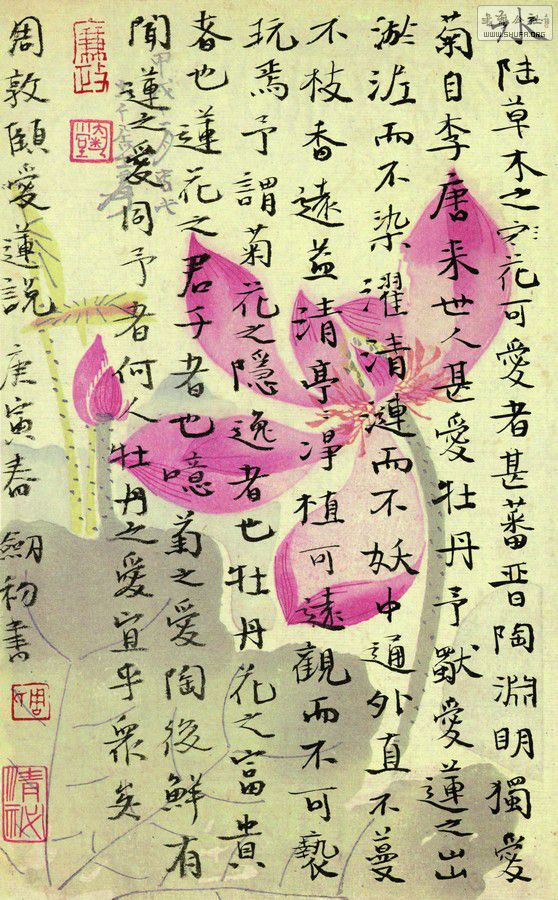 水陸草木之花可愛者甚蕃晋陶淵明獨愛
菊自李唐来世人甚愛牡丹予獸愛蓮之出
淤泥而不染濯清漣而不妖中通外直不蔓
不枝香遠益清亭〻淨植可遠觀而不可褻
玩焉予謂菊花之隱逸者也牡丹花之富貴
者也蓮花之君子者也噫菊之愛陶後鮮有
聞蓮之愛同予者何人牡丹之愛宜乎衆矣
周敦頤愛蓮說 庚寅春 劒初書
廉政
清祕